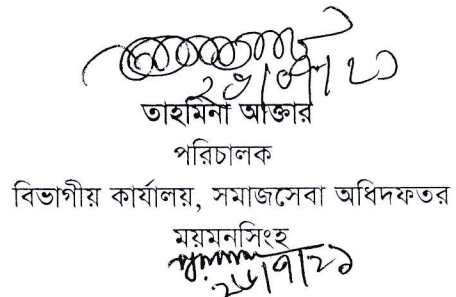 তাহমিনা আক্তার
পরিচালক
বিভাগীয় কার্যালয়, সমাজসেবা অধিদফতর
ময়মনসিংহ